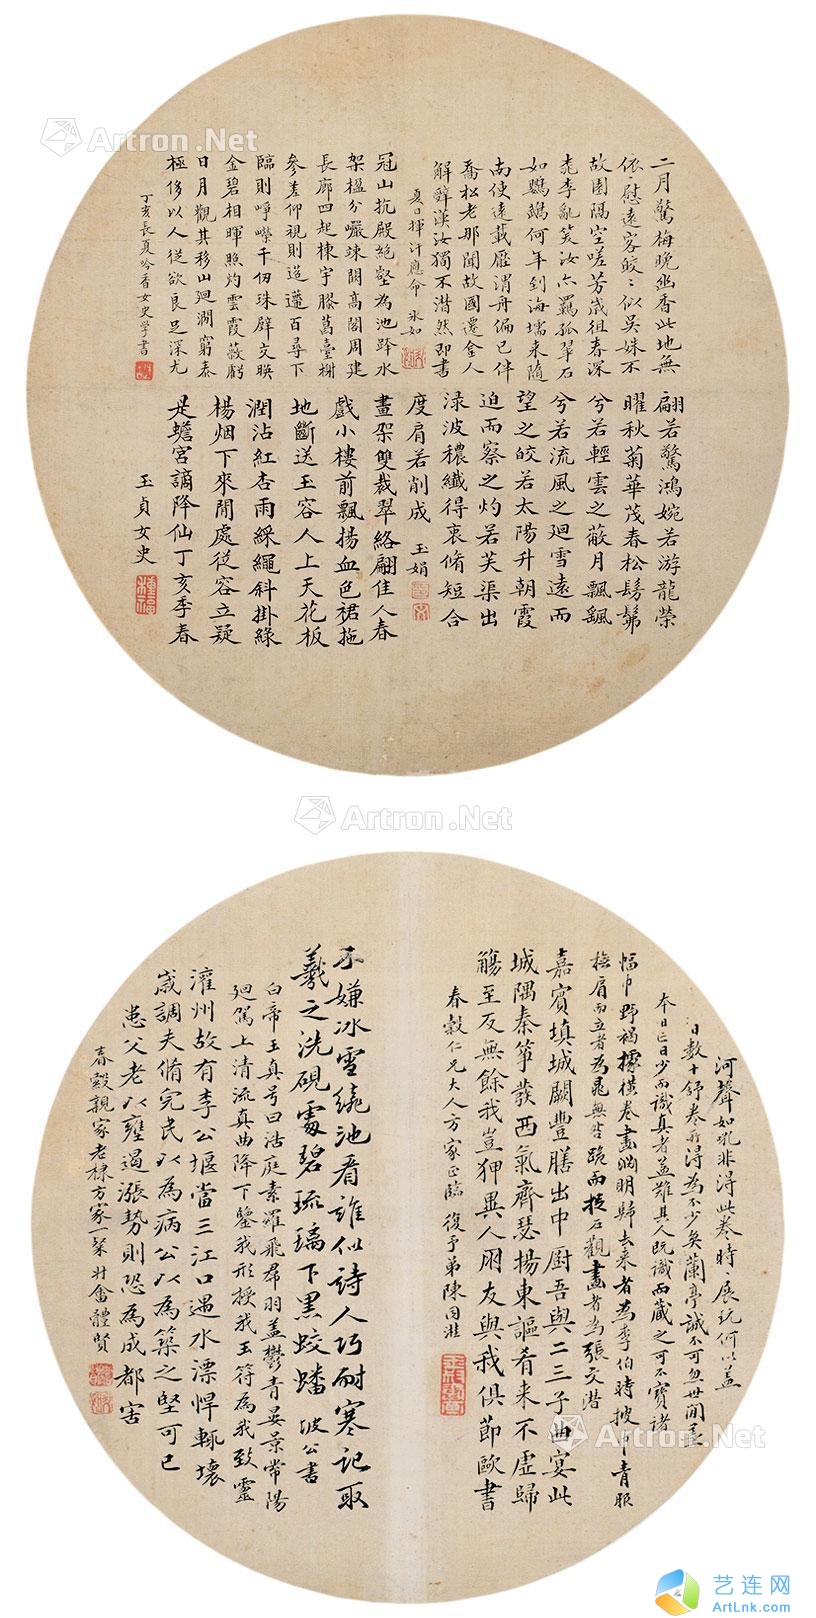 二月驚梅晚幽香此地無
依〻慰遠客皎〻似吳姝不
故園隔空嗟芳歲徂春深
桃李亂笑汝亦羈孤翠石
如鸚鵡何年到海壖來隨
南使遠載壓渭舟偏已伴
喬松老那聞故國遷金人
解辭漢汝獨不潸然即書
夏日揮汗應命 永如
冠山抗殿絕壑為池跨水
架楹分巖竦闕高閣周建
長廊四起棟宇膠葛臺榭
參差仰視則迢遰百尋下
臨則崢嶸千仞珠璧交映
金碧相暉照灼雲霞蔽虧
日月觀其移山迴澗窮泰
極侈以人從欲良足深尤
丁亥長夏吟香女史學書
翩若驚鴻婉若游龍榮
曜秋菊華茂春松髣髴
兮若輕雲之蔽月飄颻
兮若流風之迴雪遠而
望之皎若太陽升朝霞
迫而察之灼若芙渠出
淥波穠纖得衷脩短合
度肩若削成 玉娟
畫架雙裁翠絡翩佳人春
戲小樓前飄揚血色裙拖
地斷送玉容人上天花板
潤沾紅杏雨綵繩斜掛綠
楊烟下來閒處從容立疑
是蟾宮謫降仙丁亥季春
玉貞女史
Artron.Net
Artron.Net
河聲如吼非得此卷時〻展玩何以蓋
日數十舒卷所得為不少矣蘭亭誠不可忽世間墨
本日亡日少而識真者益難其人既識而藏之可不寶諸
幅巾野褐據橫卷畫淵明歸去來者為李伯時披巾青服
撫肩而立者為晁無咎跪而捉石觀畫者為張文潛
嘉賓填城闕豐膳出中廚吾與二三子曲宴此
城隅秦箏發西氣齊瑟揚東謳肴來不虛歸
觴至反無餘我豈狎異人朋友與我俱節歐書
春穀仁兄大人方家正臨 復予弟陳同
不嫌冰雪繞池看誰似詩人巧耐寒記取
羲之洗硯處碧琉璃下黑蛟蟠 坡公書
白帝玉真号曰浩庭素羅飛帬羽盖鬱青晏景常陽
廻駕上清流真曲降下鑒我形授我玉符為我致靈
灌州故有李公堰當三江口遇水漂悍輒壞
歲調夫脩完民以為病公以為築之堅可已
患父老以壅遏漲勢則恐為成都害
春穀親家老棣方家一粲 體賢
Artron.Net
艺连网
ArtLnk.com